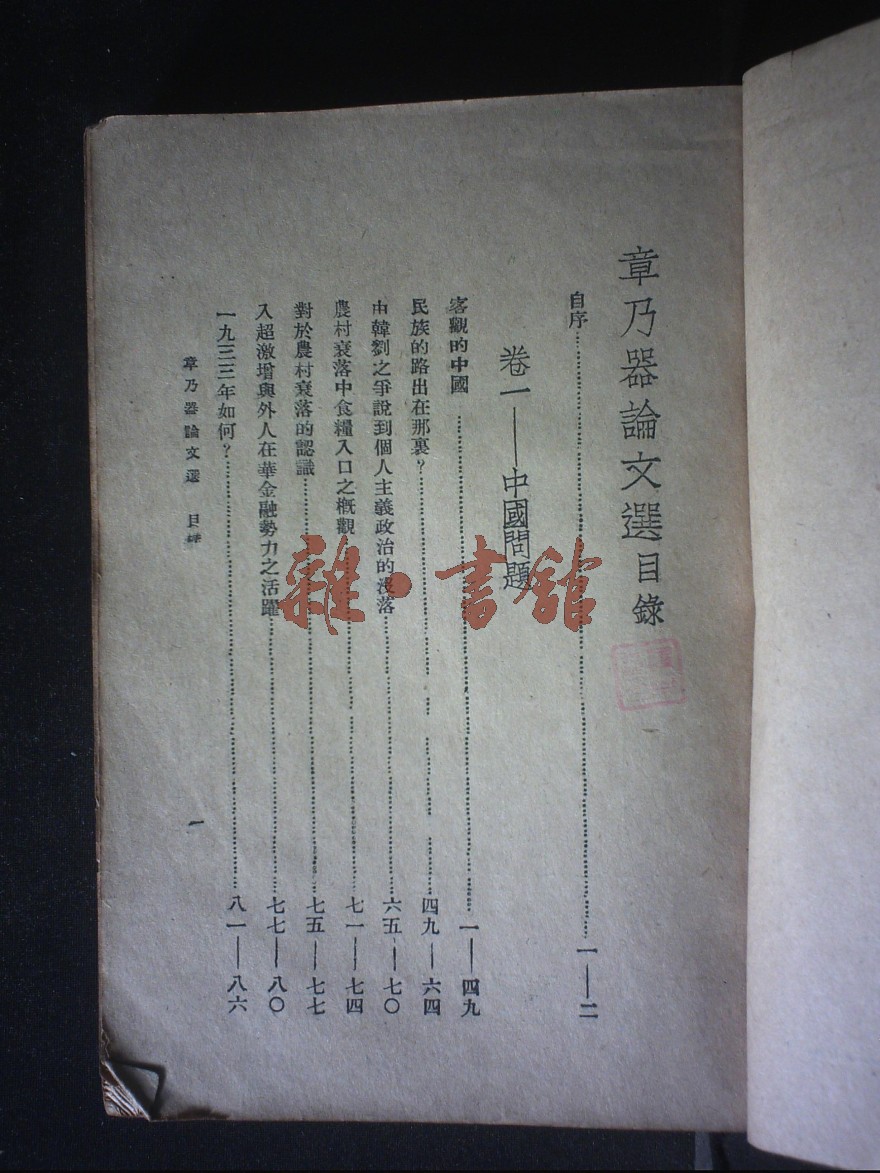 章乃器論文選目錄
自序……一——二
卷一——中國問題
客觀的中國……一——四九
民族的路出在那裏？……四九——六四
由韓劉之爭說到個人主義政治的沒落……六五——七〇
農村衰落中食糧入口之概觀……七一——七四
對於農村衰落的認識……七五——七七
入超激增與外人在華金融勢力之活躍……七七——八〇
一九三三年如何？……八一——八六
章乃器論文選　目錄
一
雜·書館